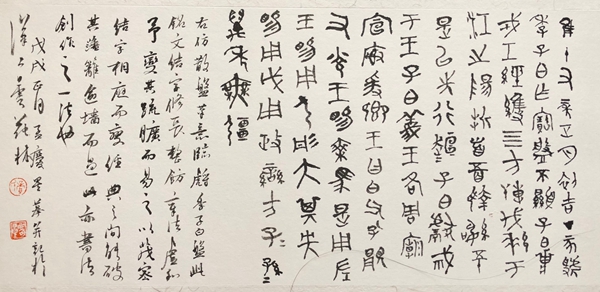 隹十又二年正月初吉丁亥虢
季子白乍寶盤不顯子白
戎工經四方搏伐于
洛之陽折首百執訊五十
是以先行子白獻戒
于王子白義王各周廟
宣榭爰卿王曰白父孔顯
又光王賜乘馬是用左
王賜用弓彤矢其央
賜用戉用政蠻方子孫
萬年無疆
右仿散盤筆意臨虢季子白盤此
銘文結字修長整飭筆法虛和
予變其疏曠而易之以茂密
結字相應而變經典之間能破
其藩籬逾墻而過此亦書法
創作之一法也
戊戌正月於墨華軒
漢上